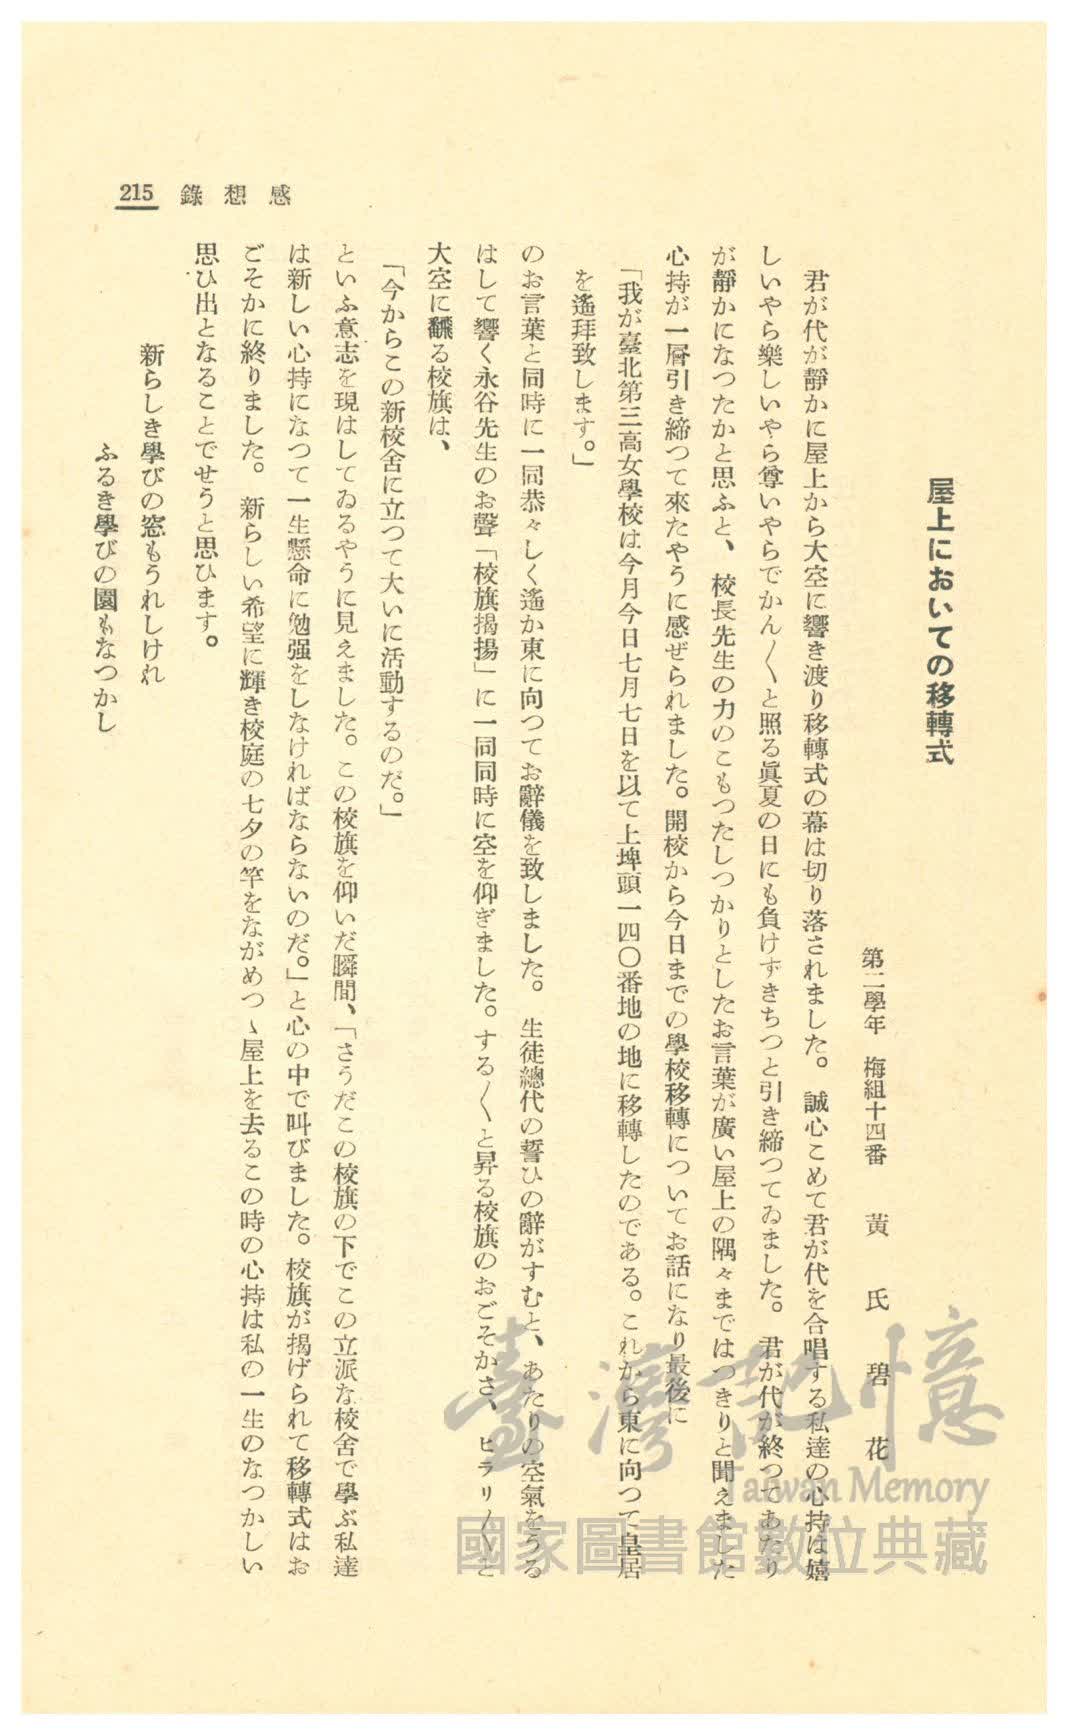 215 錄想感
屋上においての移轉式
第二學年 梅組十四番 黃氏碧花
君が代が靜かに屋上から大空に響き渡り移轉式の幕は切り落されました。誠心こめて君が代を合唱する私達の心持は嬉
しいやら樂しいやら尊いやらでかん〱と照る眞夏の日にも負けずきちつと引き締つてゐました。君が代が終つてあたり
が靜かになつたかと思ふと、校長先生の力のこもつたしつかりとしたお言葉が廣い屋上の隅々まではつきりと聞えました
心持が一層引き締つて來たやうに感ぜられました。開校から今日までの學校移轉についてお話になり最後に
「我が臺北第三高女學校は今月今日七月七日を以て上埤頭一四〇番地の地に移轉したのである。これから東に向つて皇居
を遙拜致します。」
のお言葉と同時に一同恭々しく遙か東に向つてお辭儀を致しました。生徒總代の誓ひの辭がすむと、あたりの空氣をうる
はして響く永谷先生のお聲「校旗揭揚」に一同同時に空を仰ぎました。する〱と昇る校旗のおごそかさ、ヒラリ〱と
大空に飜る校旗は、
「今からこの新校舍に立つて大いに活動するのだ。」
といふ意志を現はしてゐるやうに見えました。この校旗を仰いだ瞬間、「さうだこの校旗の下でこの立派な校舍で學ぶ私達
は新しい心持になつて一生懸命に勉强をしなければならないのだ。」と心の中で叫びました。校旗が揭げられて移轉式はお
ごそかに終りました。新らしい希望に輝き校庭の七夕の竿をながめつゝ屋上を去るこの時の心持は私の一生のなつかしい
思ひ出となることでせうと思ひます。
新らしき學びの窓もうれしけれ
ふるき學びの園もなつかし
臺灣記憶
Taiwan Memory
國家圖書館數位典藏